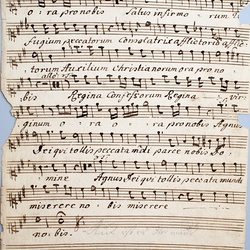 o ra pro nobis Salus infirmorum
fugium peccatorum Consolatrix afflictorum
torum Auxilium Christianorum ora pro no
bis Regina Confessorum Regina vir
ginum o ra o ra pro nobis Agnus
Dei qui tollis peccata mundi parce nobis Do
mine Agnus Dei qui tollis peccata mundi
miserere nobis miserere
nobis.